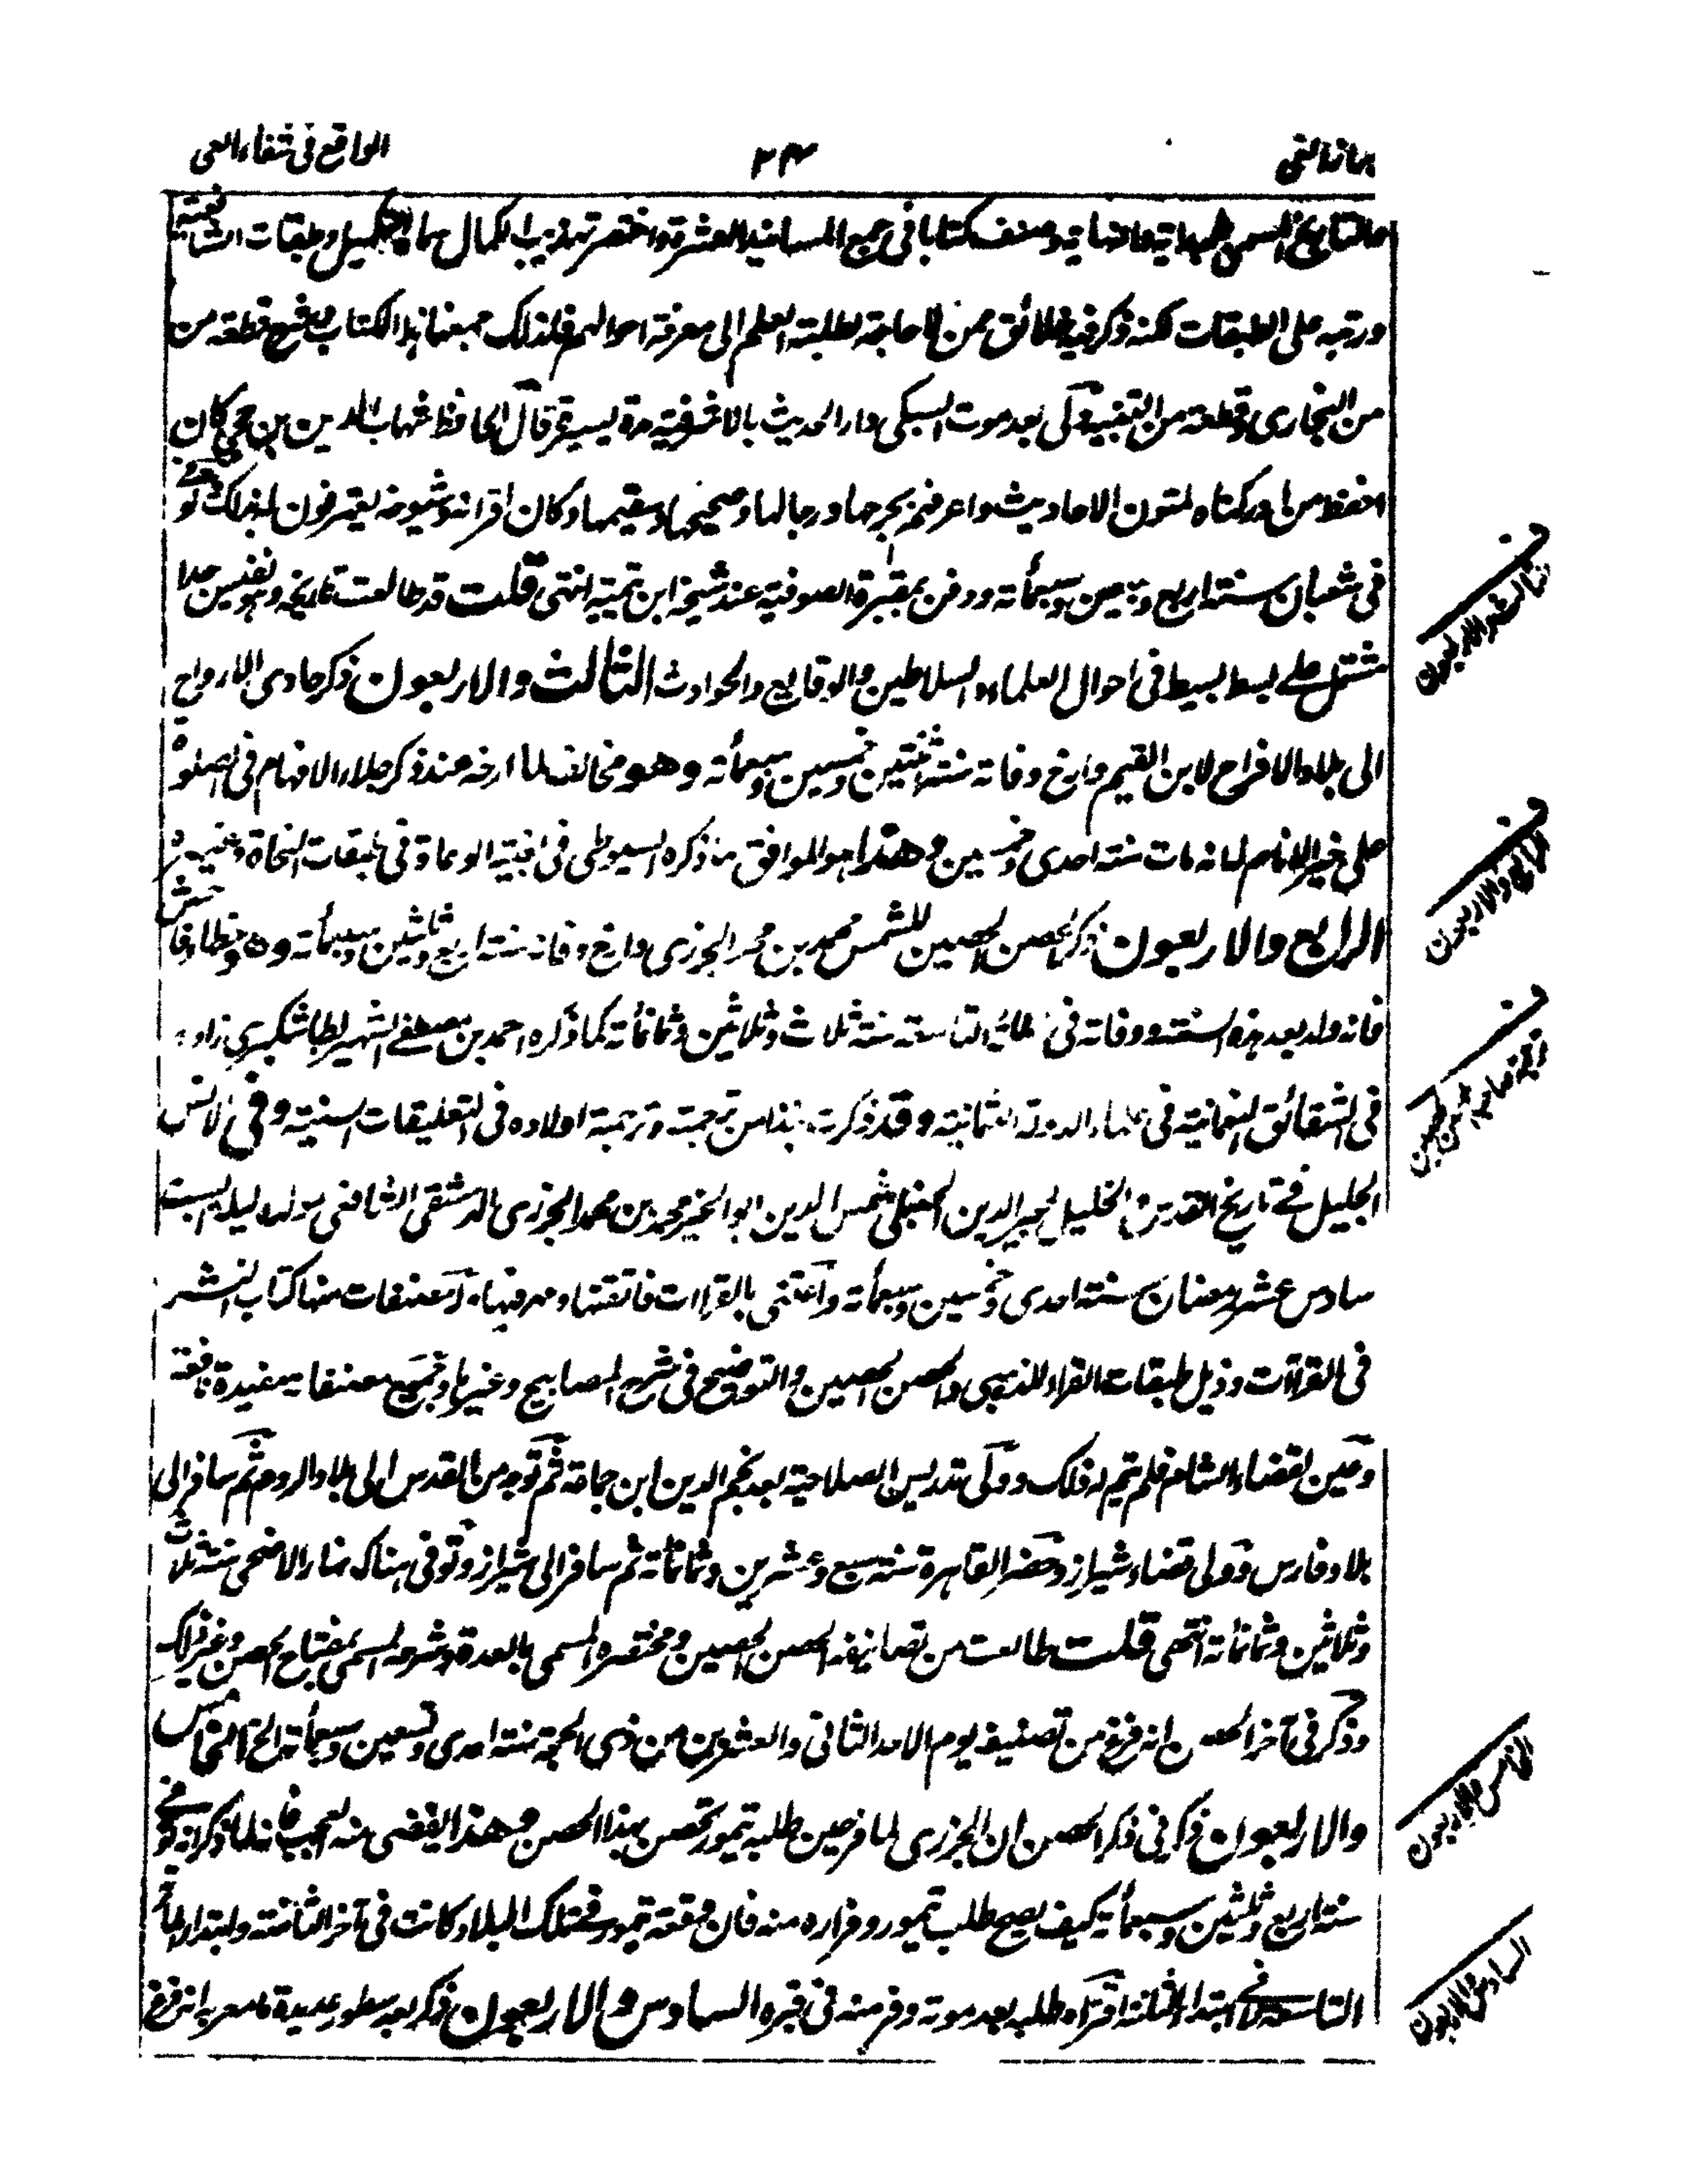 ابراز الغي
٢٤
الواقع في شفاء العي
والتاريخ المسمى بالبداية والنهاية وصنف كتابا في جمع المسانيد العشرة واختصر تهذيب الكمال سماه التكميل وطبقات الشافعية
ورتبه على الطبقات لكنه ذكر فيه خلائق ممن لا حاجة لطلبة العلم الى معرفة احوالهم فلذلك جمعنا هذا الكتاب وشرح قطعة من
من البخاري وقطعة من التنبيه وولي بعد موت السبكي دار الحديث بالاشرفية مدة يسيرة قال الحافظ شهاب الدين بن حجي كان
احفظ من ادركناه لمتون الاحاديث واعرفهم بجرحها ورجالها وصحيحها وسقيمها وكان اقرانه وشيوخه يعترفون له بذلك توفي
في شعبان سنة اربع وسبعين وسبعمأة ودفن بمقبرة الصوفية عند شيخه ابن تيمية انتهى قلت قد طالعت تاريخه وهو نفيس جدا
مشتمل على بسط بسيط في احوال العلماء والسلاطين والوقايع والحوادث الثالث والاربعون ذكر حادي الارواح
الى بلاد الافراح لابن القيم وارخ وفاته سنة اثنتين وخمسين وسبعمأة وهو مخالف لما ارخه عند ذكر جلاء الافهام في الصلوة
على خير الانام انه مات سنة احدى وخمسين وهذا هو الموافق لما ذكره السيوطي في بغية الوعاة في طبقات النحاة وغيره
الرابع والاربعون ذكر الحصن الحصين للشمس محمد بن محمد الجزري وارخ وفاته سنة اربع وثلثين وسبعمأة وهو خطا فاحش
فانه ولد بعد هذه السنة ووفاته في المائة التاسعة سنة ثلاث وثلاثين وثمانمأة كما ذكره احمد بن مصطفى الشهير بطاشكبري زاده
في الشقائق النعمانية في علماء الدولة العثمانية وقد ذكرت نبذا من ترجمته وترجمة اولاده في التعليقات السنية وفي الانس
الجليل في تاريخ القدس والخليل لمجير الدين الحنبلي شمس الدين ابو الخير محمد بن محمد الجزري الدمشقي الشافعي مولده ليلة السبت
سادس عشر رمضان سنة احدى وخمسين وسبعمأة واعتنى بالقراات فاتقنها ومهر فيها وله مصنفات منها كتاب النشر
في القراآت وذيل طبقات القراء للذهبي والحصن الحصين والتوضيح في شرح المصابيح وغيرها وجميع مصنفاته مفيدة نافعة
وعين لقضاء الشام فلم يتم له ذلك وولي تدريس الصلاحية بعد نجم الدين ابن جماعة ثم توجه من القدس الى بلاد الروم ثم سافر الى
بلاد فارس وولي قضاء شيراز وحضر القاهرة سنة سبع وعشرين وثمانمأة ثم سافر الى شيراز وتوفي هناك نهار الاضحى سنة ثلاث
وثلاثين وثمانمأة انتهى قلت طالعت من تصانيفه الحصن الحصين ومختصره المسمى بالعدة وشرحه المسمى بمفتاح الحصن وغير ذلك
وذكر في آخر الحصن انه فرغ من تصنيفه يوم الاحد الثاني والعشرين من ذي الحجة سنة احدى وتسعين وسبعمأة الخ الخامس
والاربعون ذكر في ذكر الحصن ان الجزري لما فر حين طلبه تيمور تحصن بهذا الحصن وهذا يقضى منه العجب فانه لما ذكر انه توفي
سنة اربع وثلثين وسبعمأة كيف يصح طلب تيمور وفراره منه فان وقعة تيمور في تلك البلاد كانت في آخر الثامنة وابتداء المأة
التاسعة لا في ابتداء الثامنة افتراه طلبه بعد موته وفر منه في قبره السادس والاربعون ذكر بعد سطور عديدة ما معربه انه فرغ
ف
ثالث والاربعون
ف
الرابع والاربعون
ف
الخامس والاربعون
السادس والاربعون